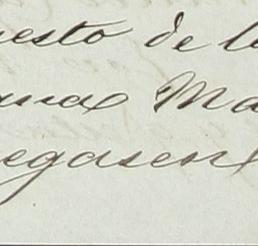 uesto de l
mas Ma
egasen